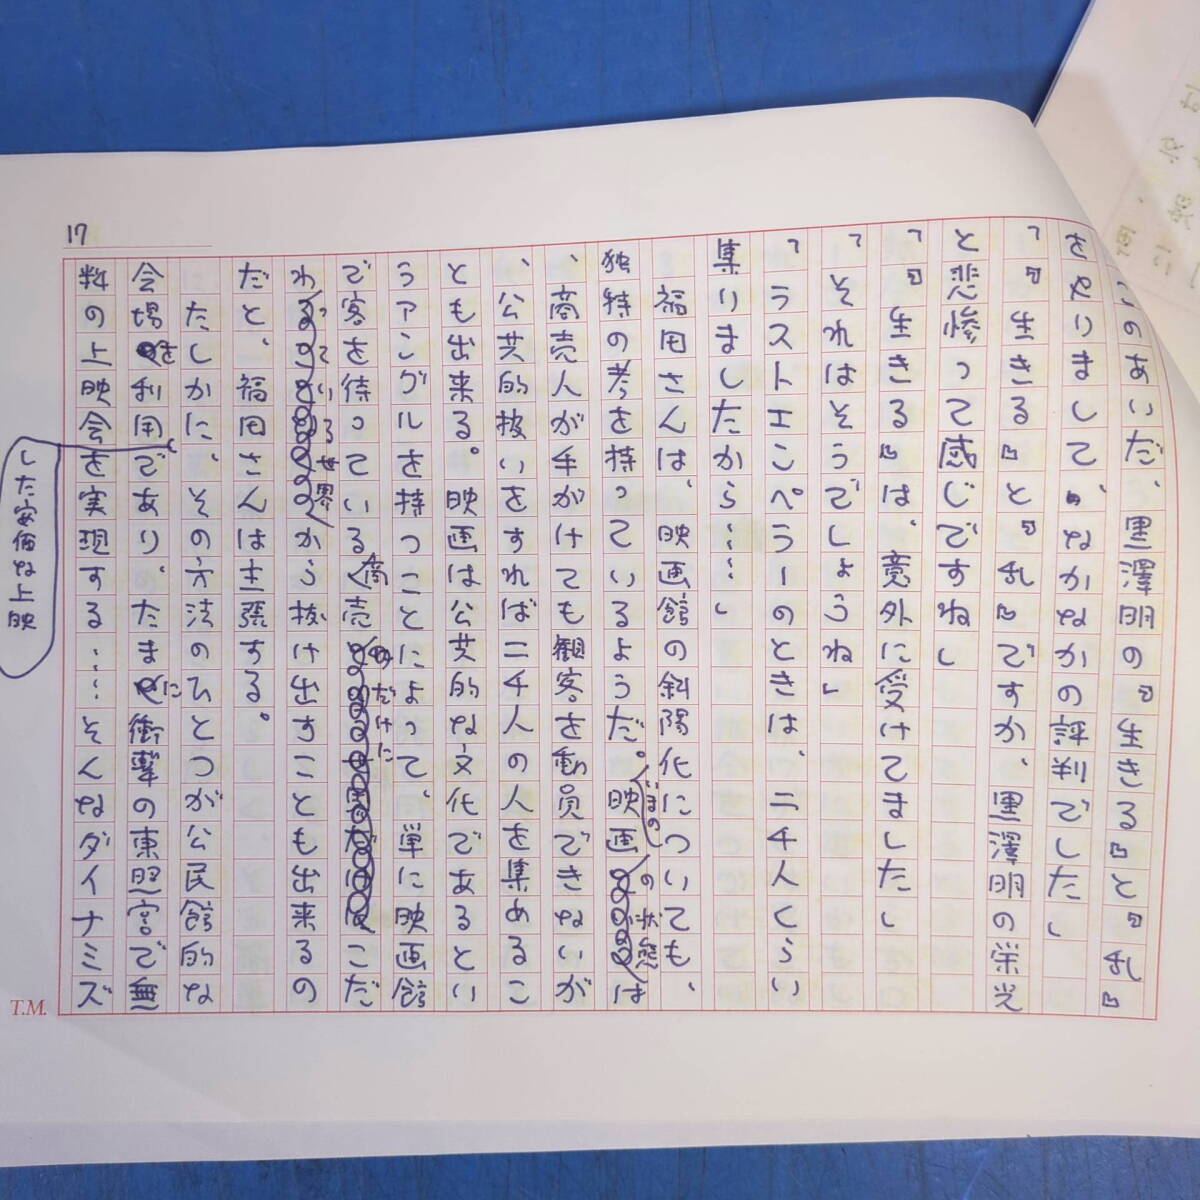 このあいだ、黒澤明の『生きる』と『乱』
をやりまして、なかなかの評判でした」
「『生きる』と『乱』ですか、黒澤明の栄光
と悲惨って感じですね」
「『生きる』は、意外に受けてましたし
「それはそうでしょうね」
「ラストエンペラーのときは、二千人くらい
集りましたから……」
福田さんは、映画館の斜陽化についても、
独特の考を持っているようだ。いまの映画の状態は
、商売人が手がけても観客を動員できないが
、公共的扱いをすれば二千人の人を集めるこ
とも出来る。映画は公共的な文化であるとい
うアングルを持つことによって、単に映画館
で客を待っている商売のだけにこだ
わっている世界から抜け出すことも出来るの
だと、福田さんは主張する。
たしかに、その方法のひとつが公民館的な
会場を利用した安価な上映であり、たまに衝撃の東照宮で無
料の上映会を実現する……そんなダイナミズ
17
T.M.